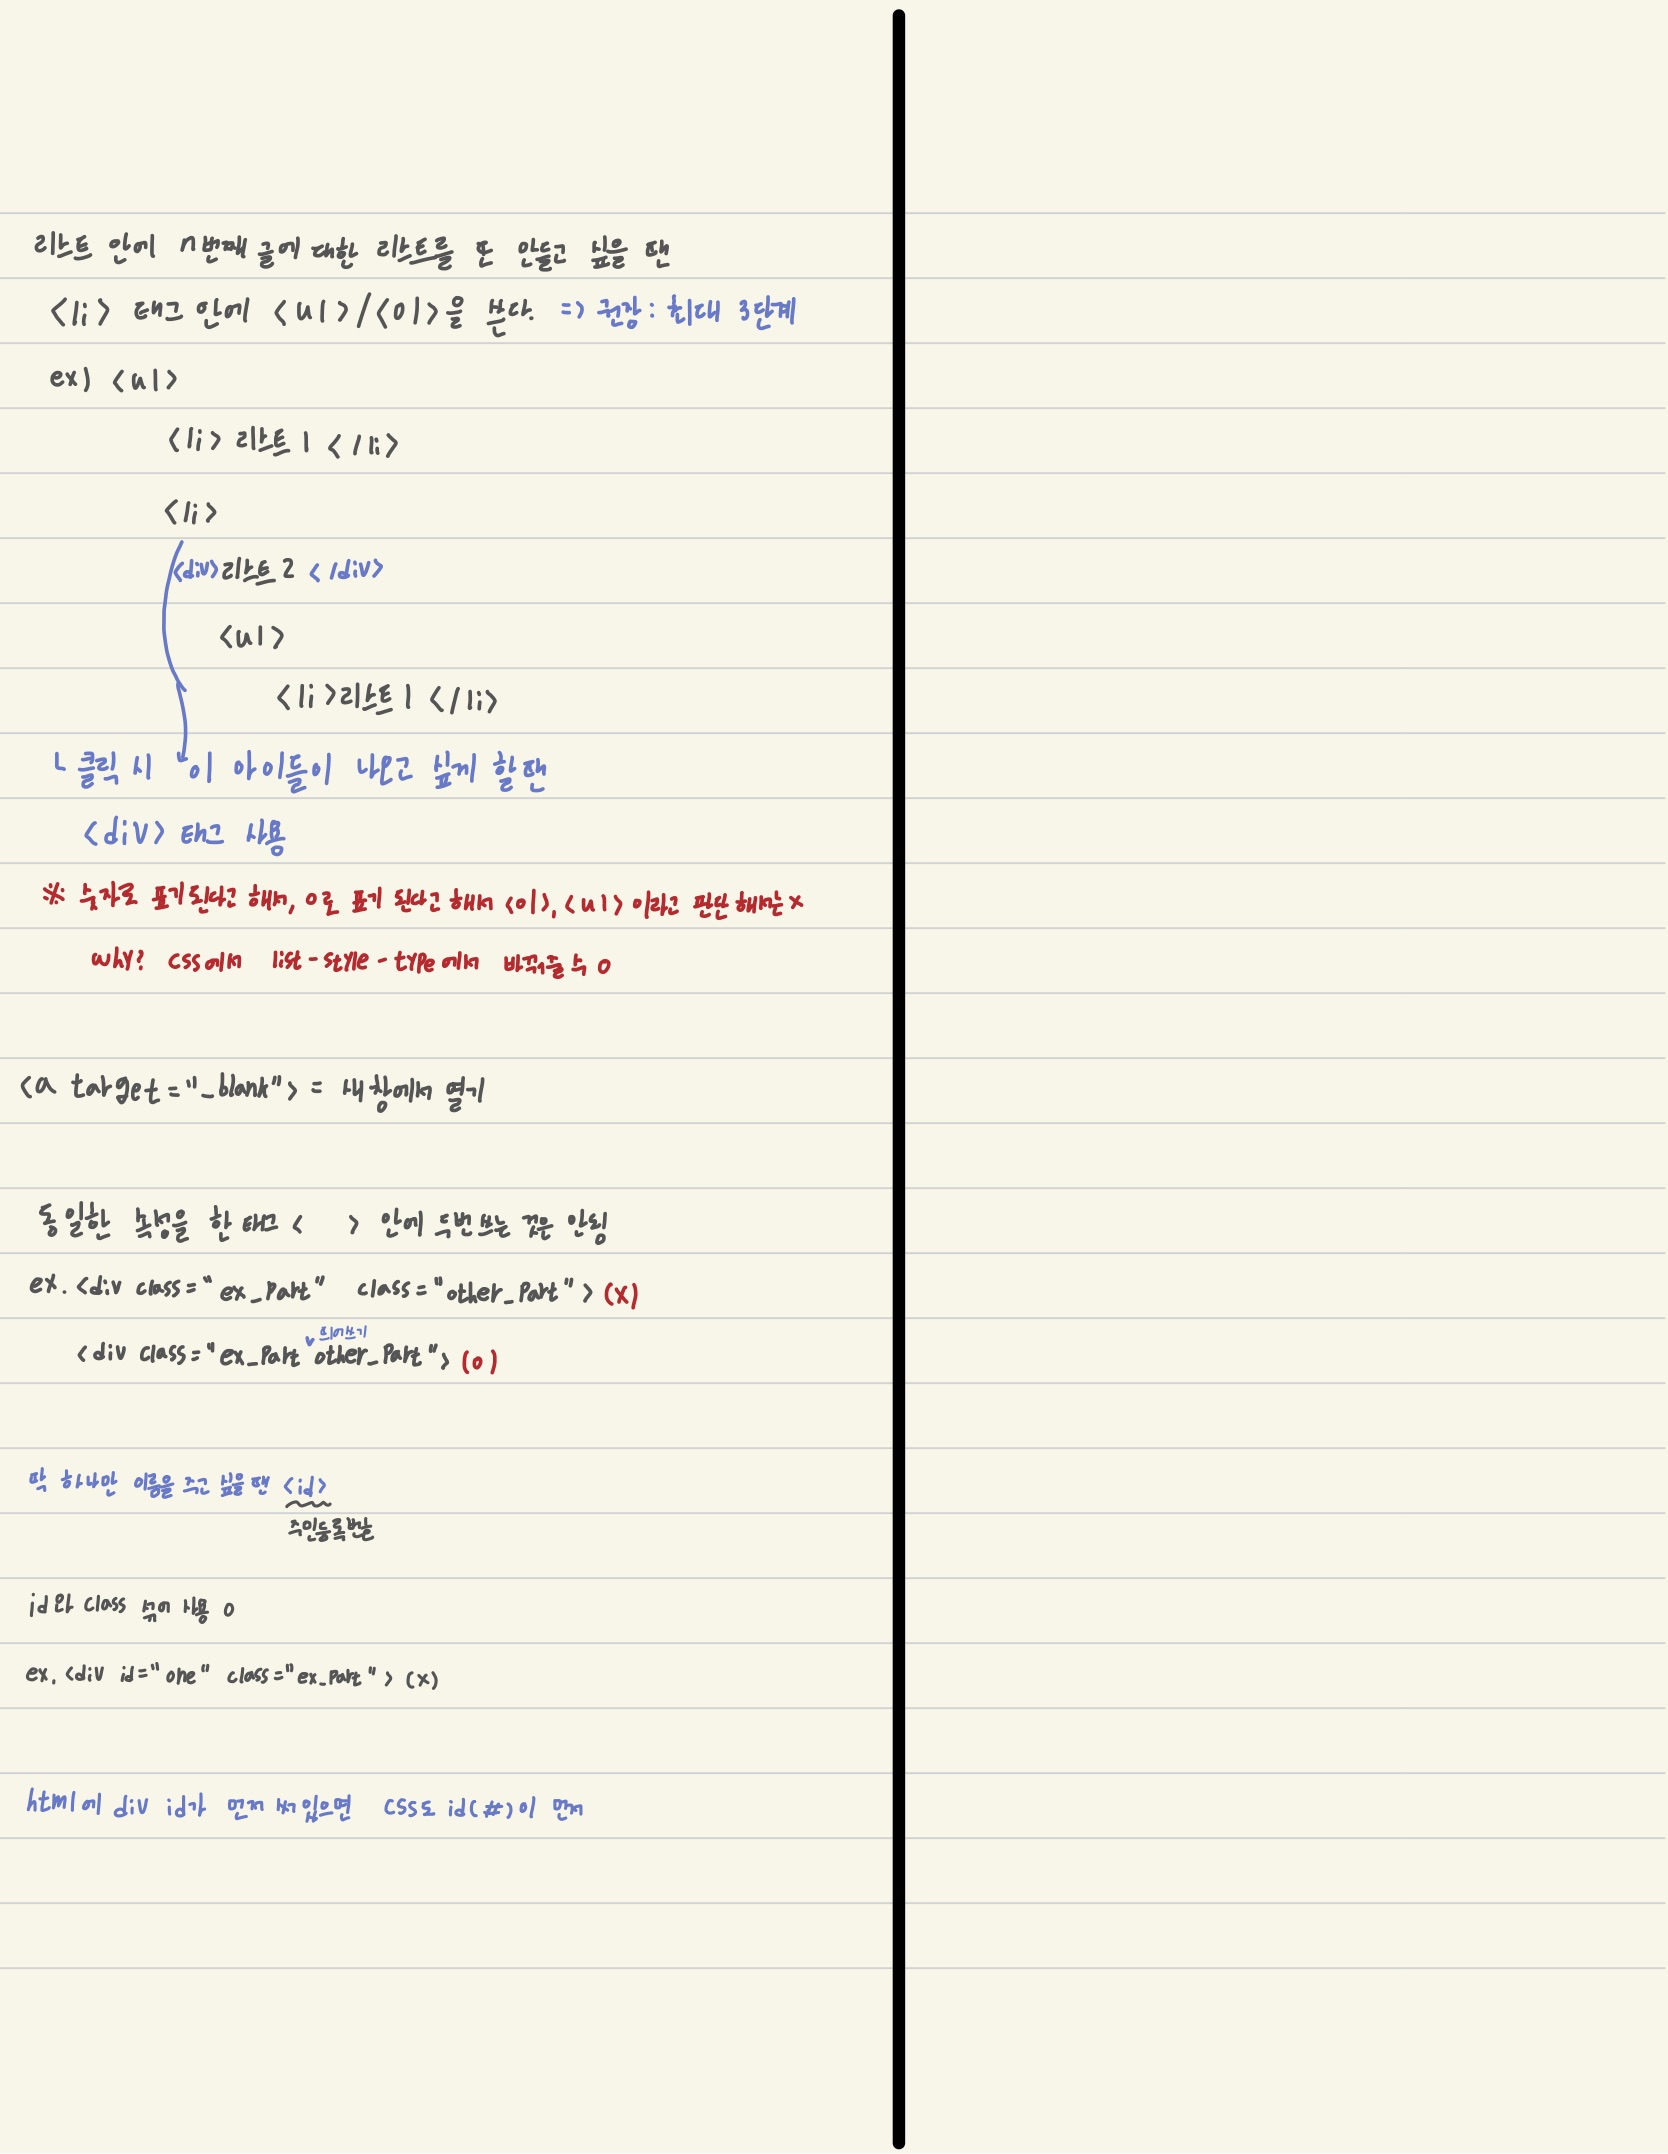 리스트 안에 n번째 글에 대한 리스트를 또 만들고 싶을 땐
<li> 태그 안에 <ul>/<ol>을 쓴다. => 권장 : 최대 3단계
ex) <ul>
<li> 리스트 1 </li>
<li>
<div>리스트 2 </div>
<ul>
<li>리스트 1 </li>
ㄴ 클릭 시 이 아이들이 나오고 싶게 할 땐
<div> 태그 사용
※ 숫자로 표기된다고 해서, o로 표기 된다고 해서 <ol>, <ul> 이라고 판단 해서는 x
why? css에서 list-style-type에서 바꿔줄 수 o
<a target="_blank"> = 새 창에서 열기
동일한 속성을 한 태그 < > 안에 두번 쓰는 것은 안됨
ex. <div class="ex_part" class="other_part"> (x)
띄어쓰기
<div class="ex_part other_part"> (o)
딱 하나만 이름을 주고 싶을 땐 <id>
주민등록번호
id와 class 섞어 사용 o
ex. <div id="one" class="ex_part"> (x)
html에 div id가 먼저 써 있으면 css도 id(#)이 먼저